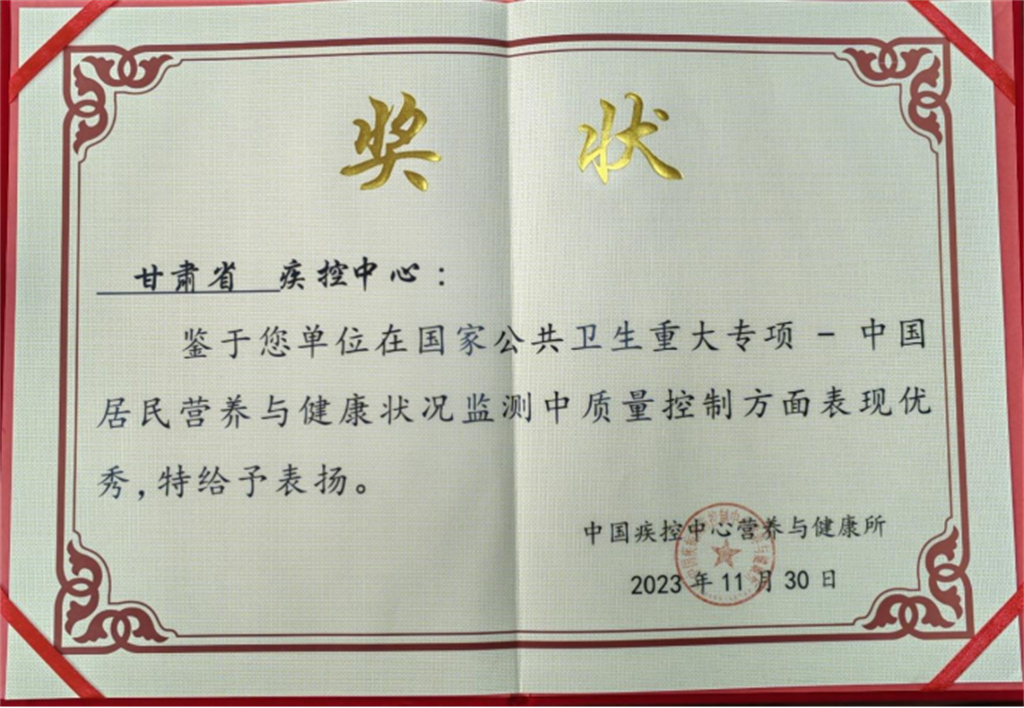 奖状
甘肃省 疾控中心：
鉴于您单位在国家公共卫生重大专项-中国
居民营养与健康状况监测中质量控制方面表现优
秀,特给予表扬。
中国疾控中心营养与健康所
2023年11月30日